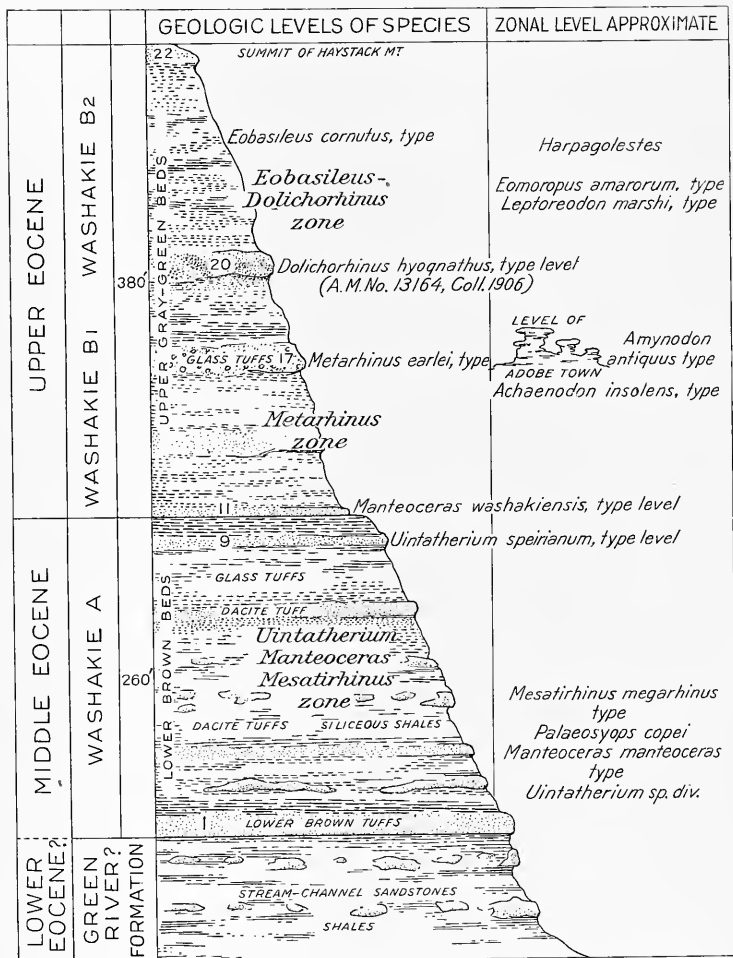 GEOLOGIC LEVELS OF SPECIES
ZONAL LEVEL APPROXIMATE
UPPER EOCENE
MIDDLE EOCENE
LOWER
EOCENE?
WASHAKIE B2
WASHAKIE B1
WASHAKIE A
GREEN
RIVER?
FORMATION
380'
260'
UPPER GRAY-GREEN BEDS
LOWER BROWN BEDS
22
SUMMIT OF HAYSTACK MT.
Eobasileus cornutus, type
Eobasileus-
Dolichorhinus
zone
20
Dolichorhinus hyognathus, type level
(A.M.No. 13164, Coll. 1906)
GLASS TUFFS 17
Metarhinus earlei, type
Metarhinus
zone
11
Manteoceras washakiensis, type level
9
Uintatherium speirianum, type level
GLASS TUFFS
DACITE TUFF
Uintatherium
Manteoceras
Mesatirhinus
zone
DACITE TUFFS
SILICEOUS SHALES
1
LOWER BROWN TUFFS
STREAM-CHANNEL SANDSTONES
SHALES
Harpagolestes
Eomoropus amarorum, type
Leptoreodon marshi, type
LEVEL OF
ADOBE TOWN
Amynodon
antiquus type
Achaenodon insolens, type
Mesatirhinus megarhinus
type
Palaeosyops copei
Manteoceras manteoceras
type
Uintatherium sp. div.